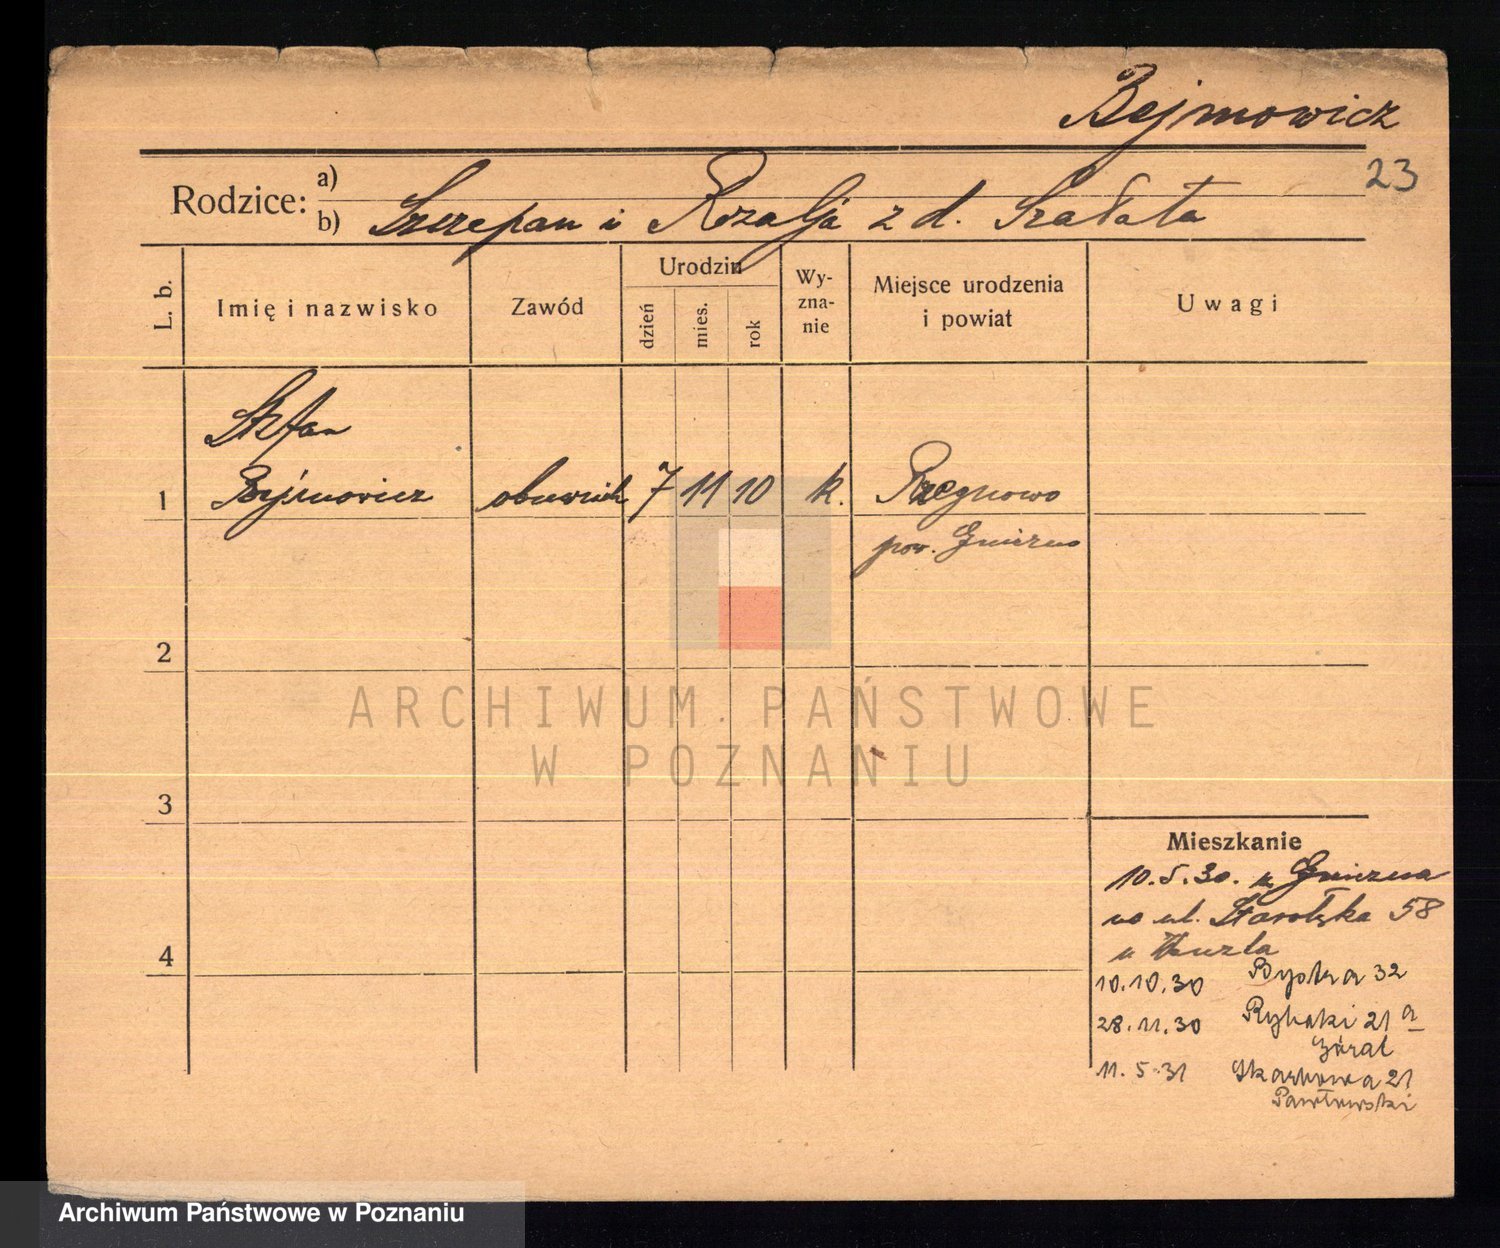 Bejmowicz
23
Rodzice: a)
b) Szczepan i Rozalja z d. Szałata
L. b.
Imię i nazwisko
Zawód
Urodzin
dzień
mies.
rok
Wy-
zna-
nie
Miejsce urodzenia
i powiat
Uwagi
Stefan
1 Bejmowicz obuwnik 7 11 10 k.
pow. Gniezno
2
ARCHIWUM PAŃSTWOWE
W POZNANIU
3
Mieszkanie
10.5.30. z Gniezna
na ul. Starołęka 58
u
4
10.10.30 Bystra 32
28.11.30 Rybaki 21 a
Góral
11.5.31 Skarbowa 21
Pawłowski
Archiwum Państwowe w Poznaniu